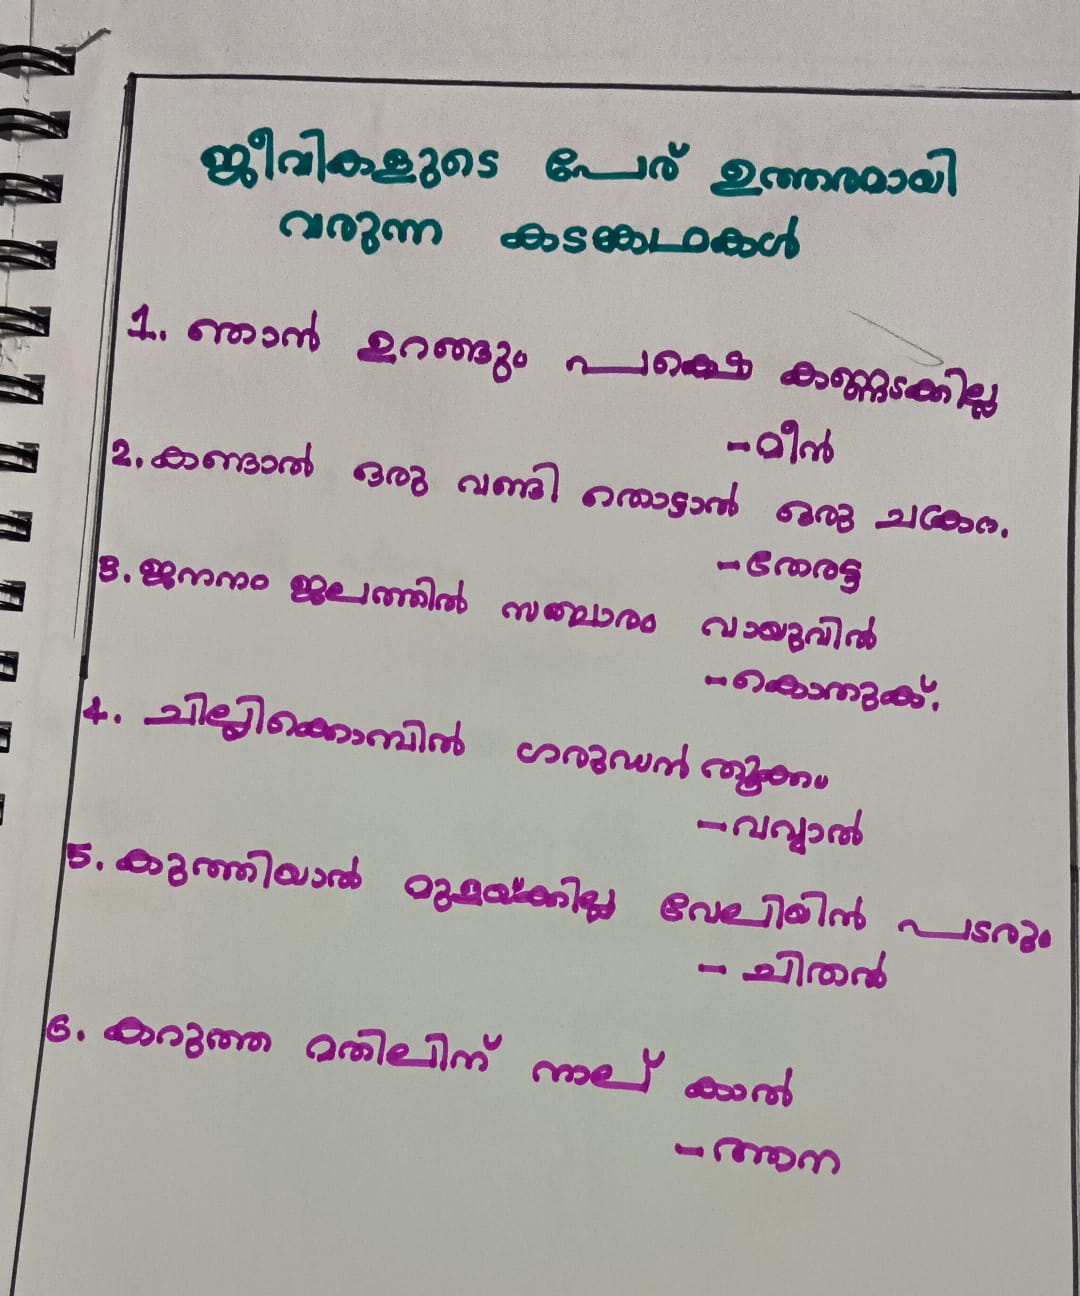 ജീവികളുടെ പേര് ഉത്തരമായി
വരുന്ന കടങ്കഥകൾ
1. ഞാൻ ഉറങ്ങും പക്ഷെ കണ്ണടക്കില്ല
-മീൻ
2. കണ്ടാൽ ഒരു വണ്ടി തൊട്ടാൽ ഒരു ചക്രം.
-തേരട്ട
3. ജനനം ജലത്തിൽ സഞ്ചാരം വായുവിൽ
-കൊതുക്.
4. ചില്ലിക്കൊമ്പിൽ ഗരുഡൻ തൂക്കം
-വവ്വാൽ
5. കുത്തിയാൽ മുളയ്ക്കില്ല വേലിയിൽ പടരും
- ചിതൽ
6. കറുത്ത മതിലിന് നാല് കാൽ
-ആന